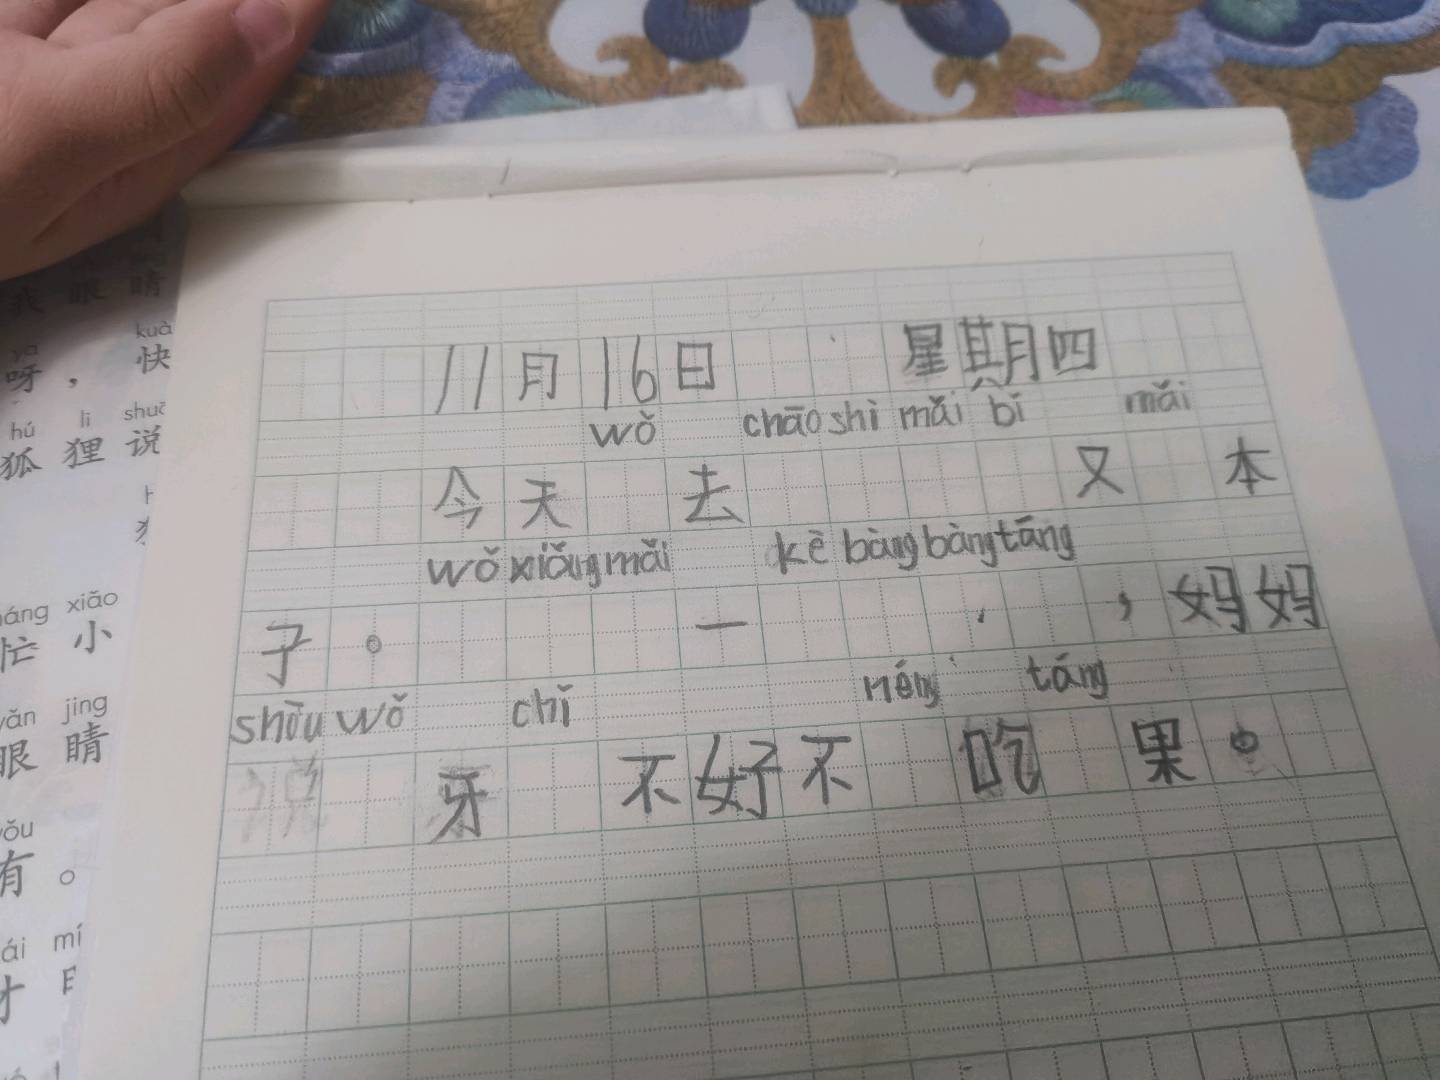 呀， 快
kuà
hú li shuō
狐 狸 说
xiǎo
忙 小
jing
眼 睛
有 。
mí
11月16日 星期四
wǒ chāo shì mǎi bǐ mǎi
今天 去 又 本
wǒ xiǎng mǎi kē bàng bàng tāng
子。 一 ，妈妈
shōu wǒ chǐ néng táng
说 牙 不好不 吃 果。